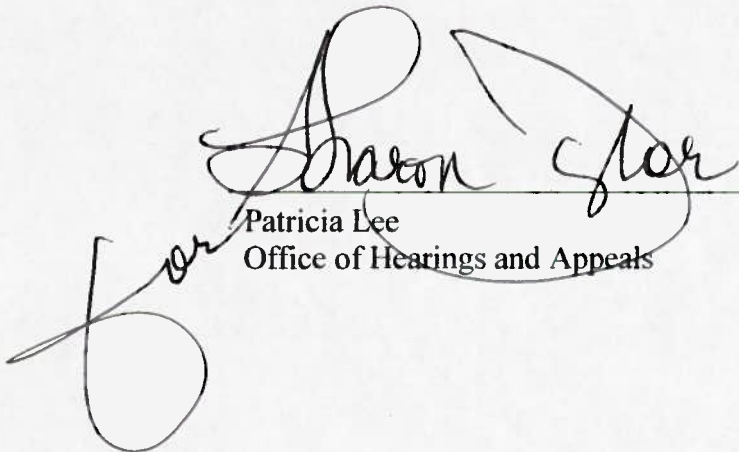 Sharon
for Patricia Lee
Office of Hearings and Appeals